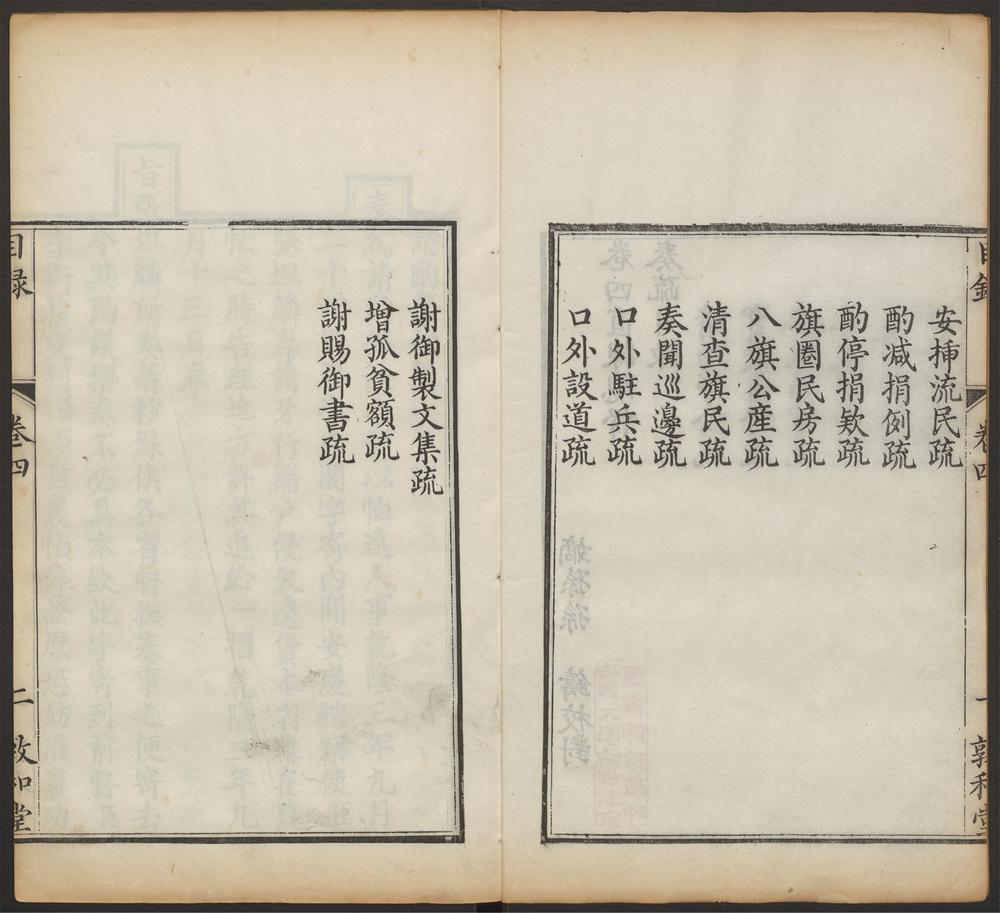 目錄
卷四
一
敦和堂
安揷流民疏
酌减捐例疏
酌停捐欵疏
旗圈民房疏
八旗公産疏
清查旗民疏
奏聞巡邊疏
口外駐兵疏
口外設道疏
謝御製文集疏
增孤貧額疏
謝賜御書疏
目録
卷四
二
敦和堂